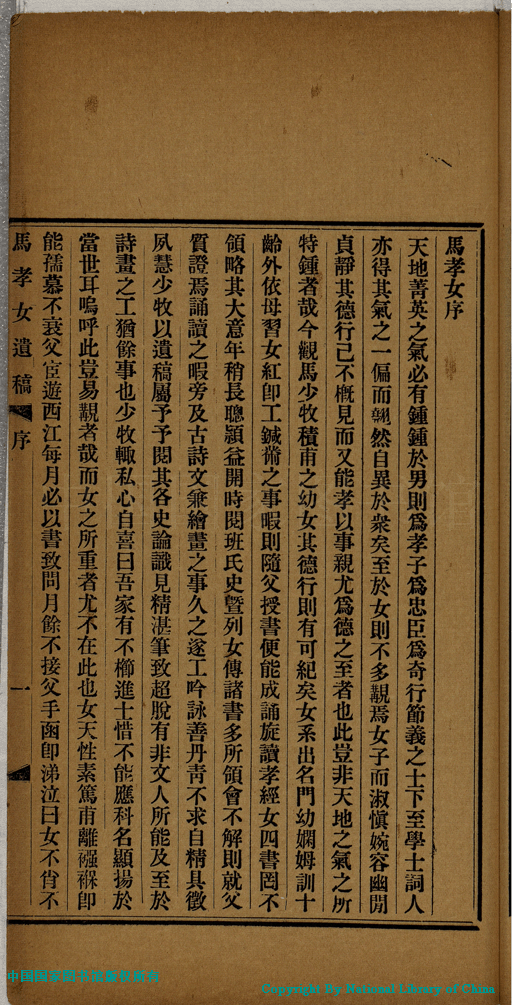 馬孝女序
天地菁英之氣必有鍾鍾於男則爲孝子爲忠臣爲奇行節義之士下至學士詞人
亦得其氣之一偏而翹然自異於衆矣至於女則不多覯焉女子而淑愼婉容幽閒
貞靜其德行已不槪見而又能孝以事親尤爲德之至者也此豈非天地之氣之所
特鍾者哉今觀馬少牧積甫之幼女其德行則有可紀矣女系出名門幼嫻姆訓十
齡外依母習女紅卽工鍼黹之事暇則隨父授書便能成誦旋讀孝經女四書罔不
領略其大意年稍長聰穎益開時閱班氏史曁列女傳諸書多所領會不解則就父
質證焉誦讀之暇旁及古詩文兼繪畫之事久之遂工吟詠善丹靑不求自精具徵
夙慧少牧以遺稿屬予予閱其各史論識見精湛筆致超脫有非文人所能及至於
詩畫之工猶餘事也少牧輒私心自喜曰吾家有不櫛進士惜不能應科名顯揚於
當世耳嗚呼此豈易覯者哉而女之所重者尤不在此也女天性素篤甫離襁褓卽
能孺慕不衰父宦遊西江每月必以書致問月餘不接父手函卽涕泣曰女不肖不
馬孝女遺稿 序 一
中国国家图书馆版权所有
Copyright By National Library of China